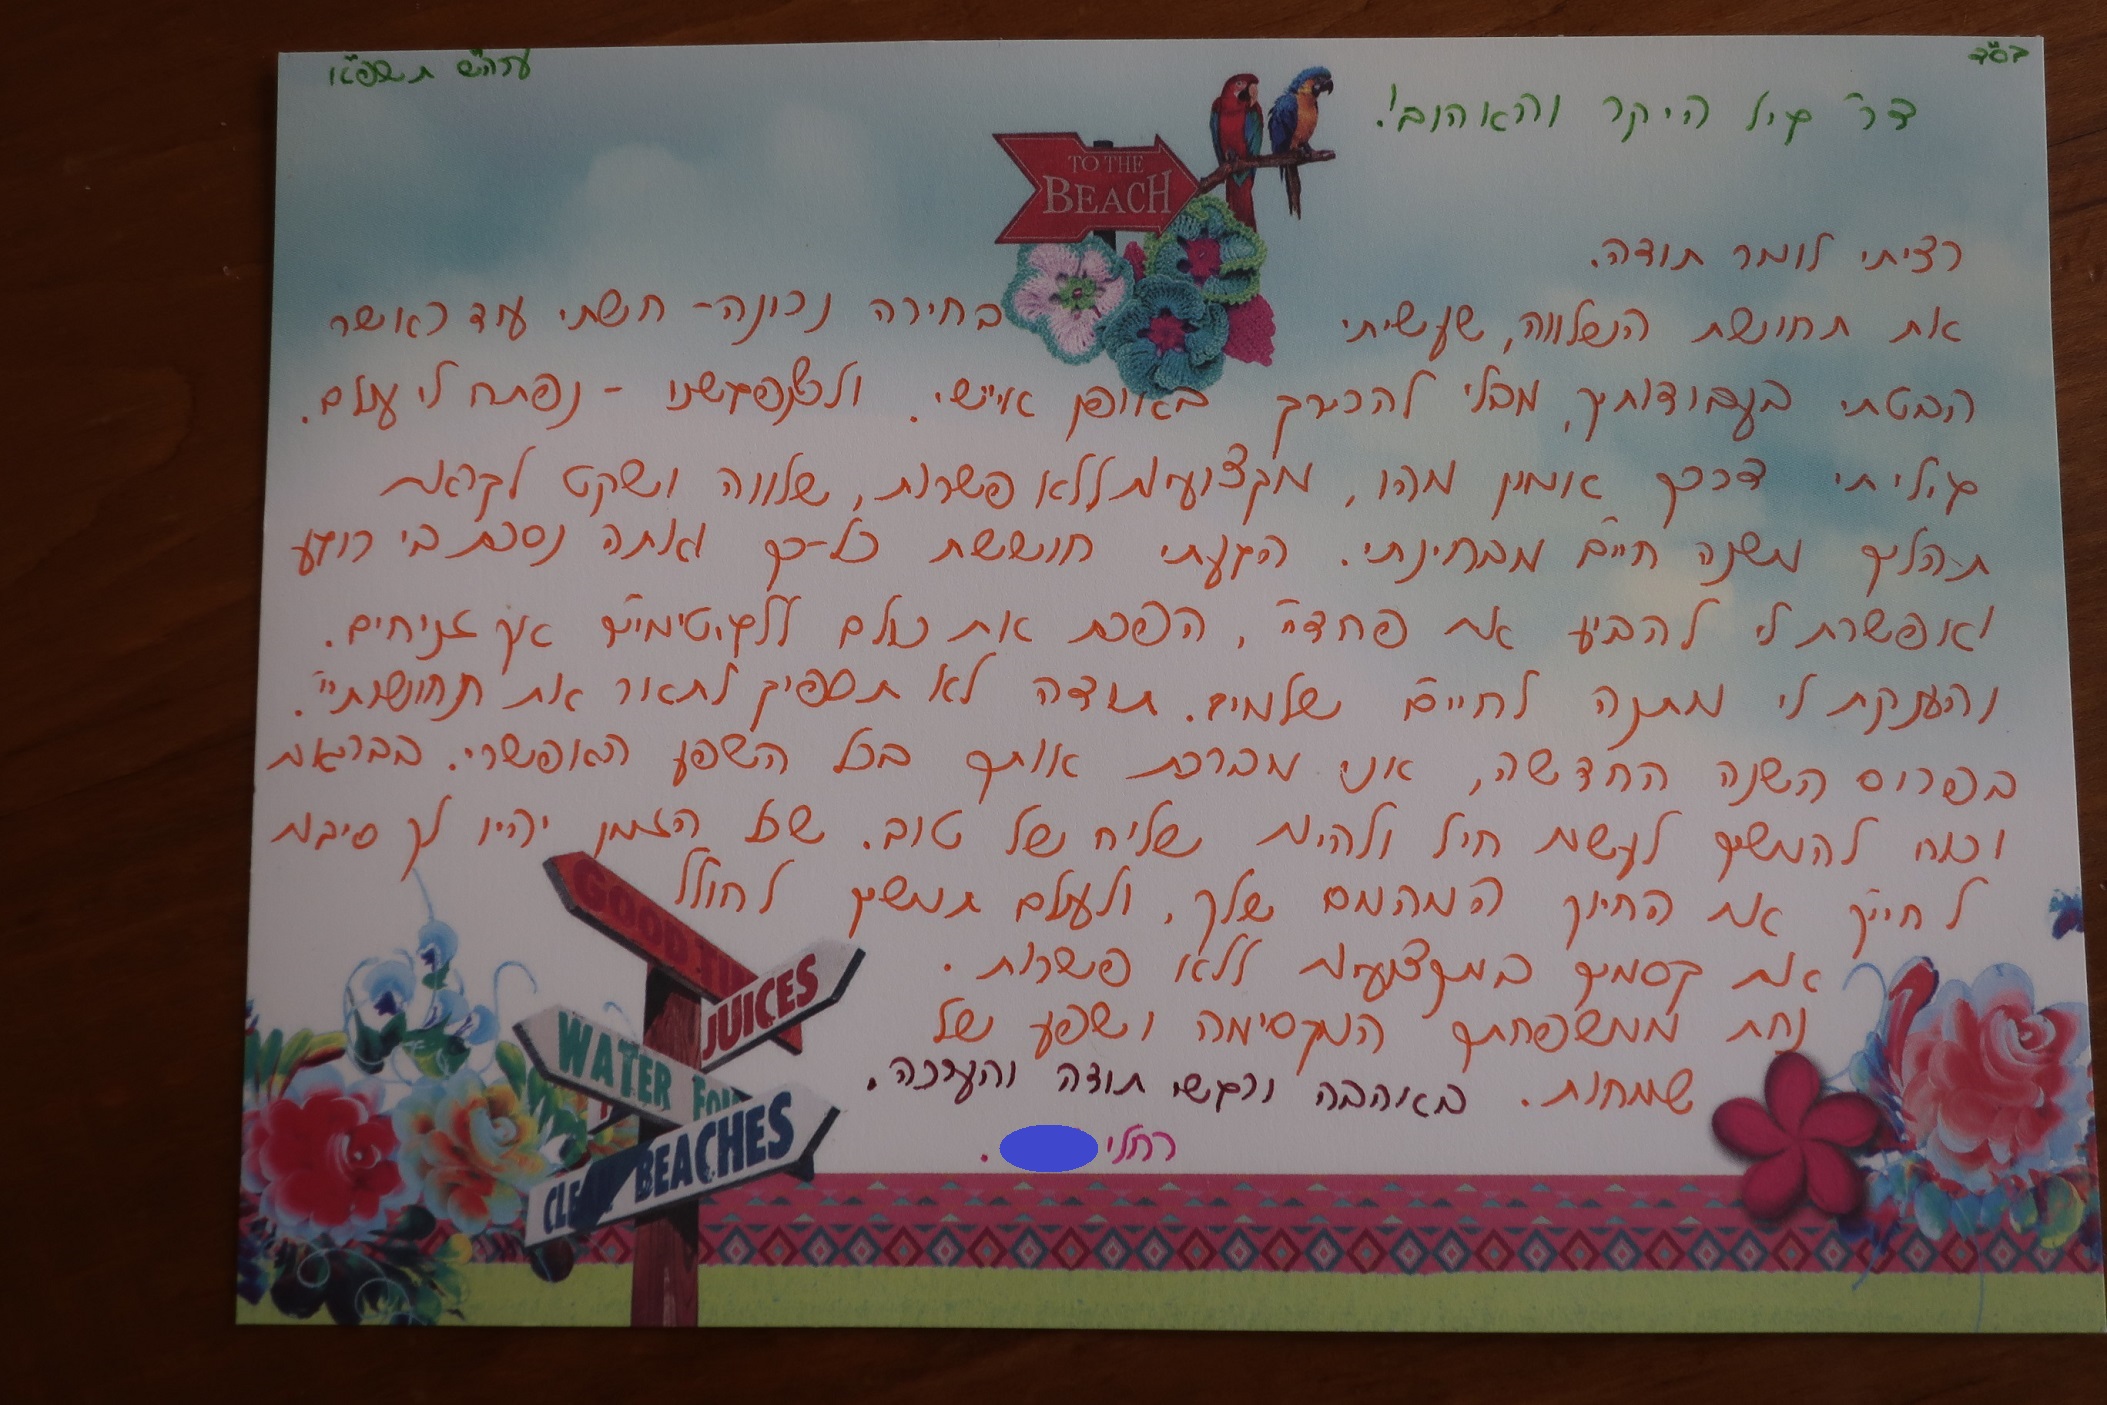 בס"ד
ערה"ש תשפ"א
דר' גיל היקר והאהוב!
TO THE
BEACH
רציתי לומר תודה.
את תחושת השלווה, שעשיתי בחירה נכונה- חשתי עוד כאשר
הבטתי בעבודותיך, מבלי להכירך באופן אישי. ולכשנפגשנו - נפתח לי עולם.
גיליתי דרכך אומין מהו, מקצועיות ללא פשרות, שלווה ושקט לקראת
תהליך משנה חיים מבחינתי. הגעתי חוששת כל-כך ואתה נסכת בי רוגע
ואפשרת לי להביע את פחדיי, הפכת את כולם ללגיטימיים אך זניחים.
והענקת לי מתנה לחיים שלמים. תודה לא תספיק לתאר את תחושותיי.
בפרוס השנה החדשה, אני מברכת אותך בכל השפע האפשרי. בבריאות
וכוח להמשיך לעשות חיל ולהיות שליח של טוב. שכל הזמן יהיו לך סיבות
לחייך את החיוך המהמם שלך, ולעולם תמשיך לחולל
את קסמיך במקצועיות ללא פשרות.
נחת ממשפחתך המקסימה ושפע של
שמחות. באוהבה ורגשי תודה והערכה.
רחלי .
GOOD
JUICES
WATER
BEACHES